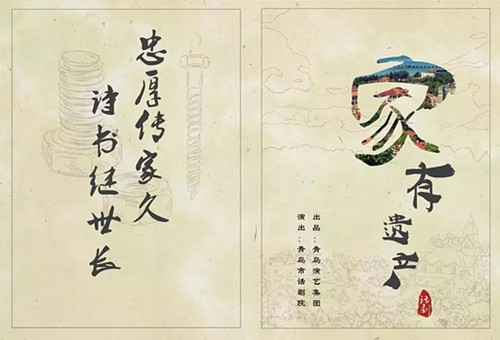 忠厚传家久
诗书继世长
家有遗产
出品：青岛演艺集团
演出：青岛市话剧院
话剧